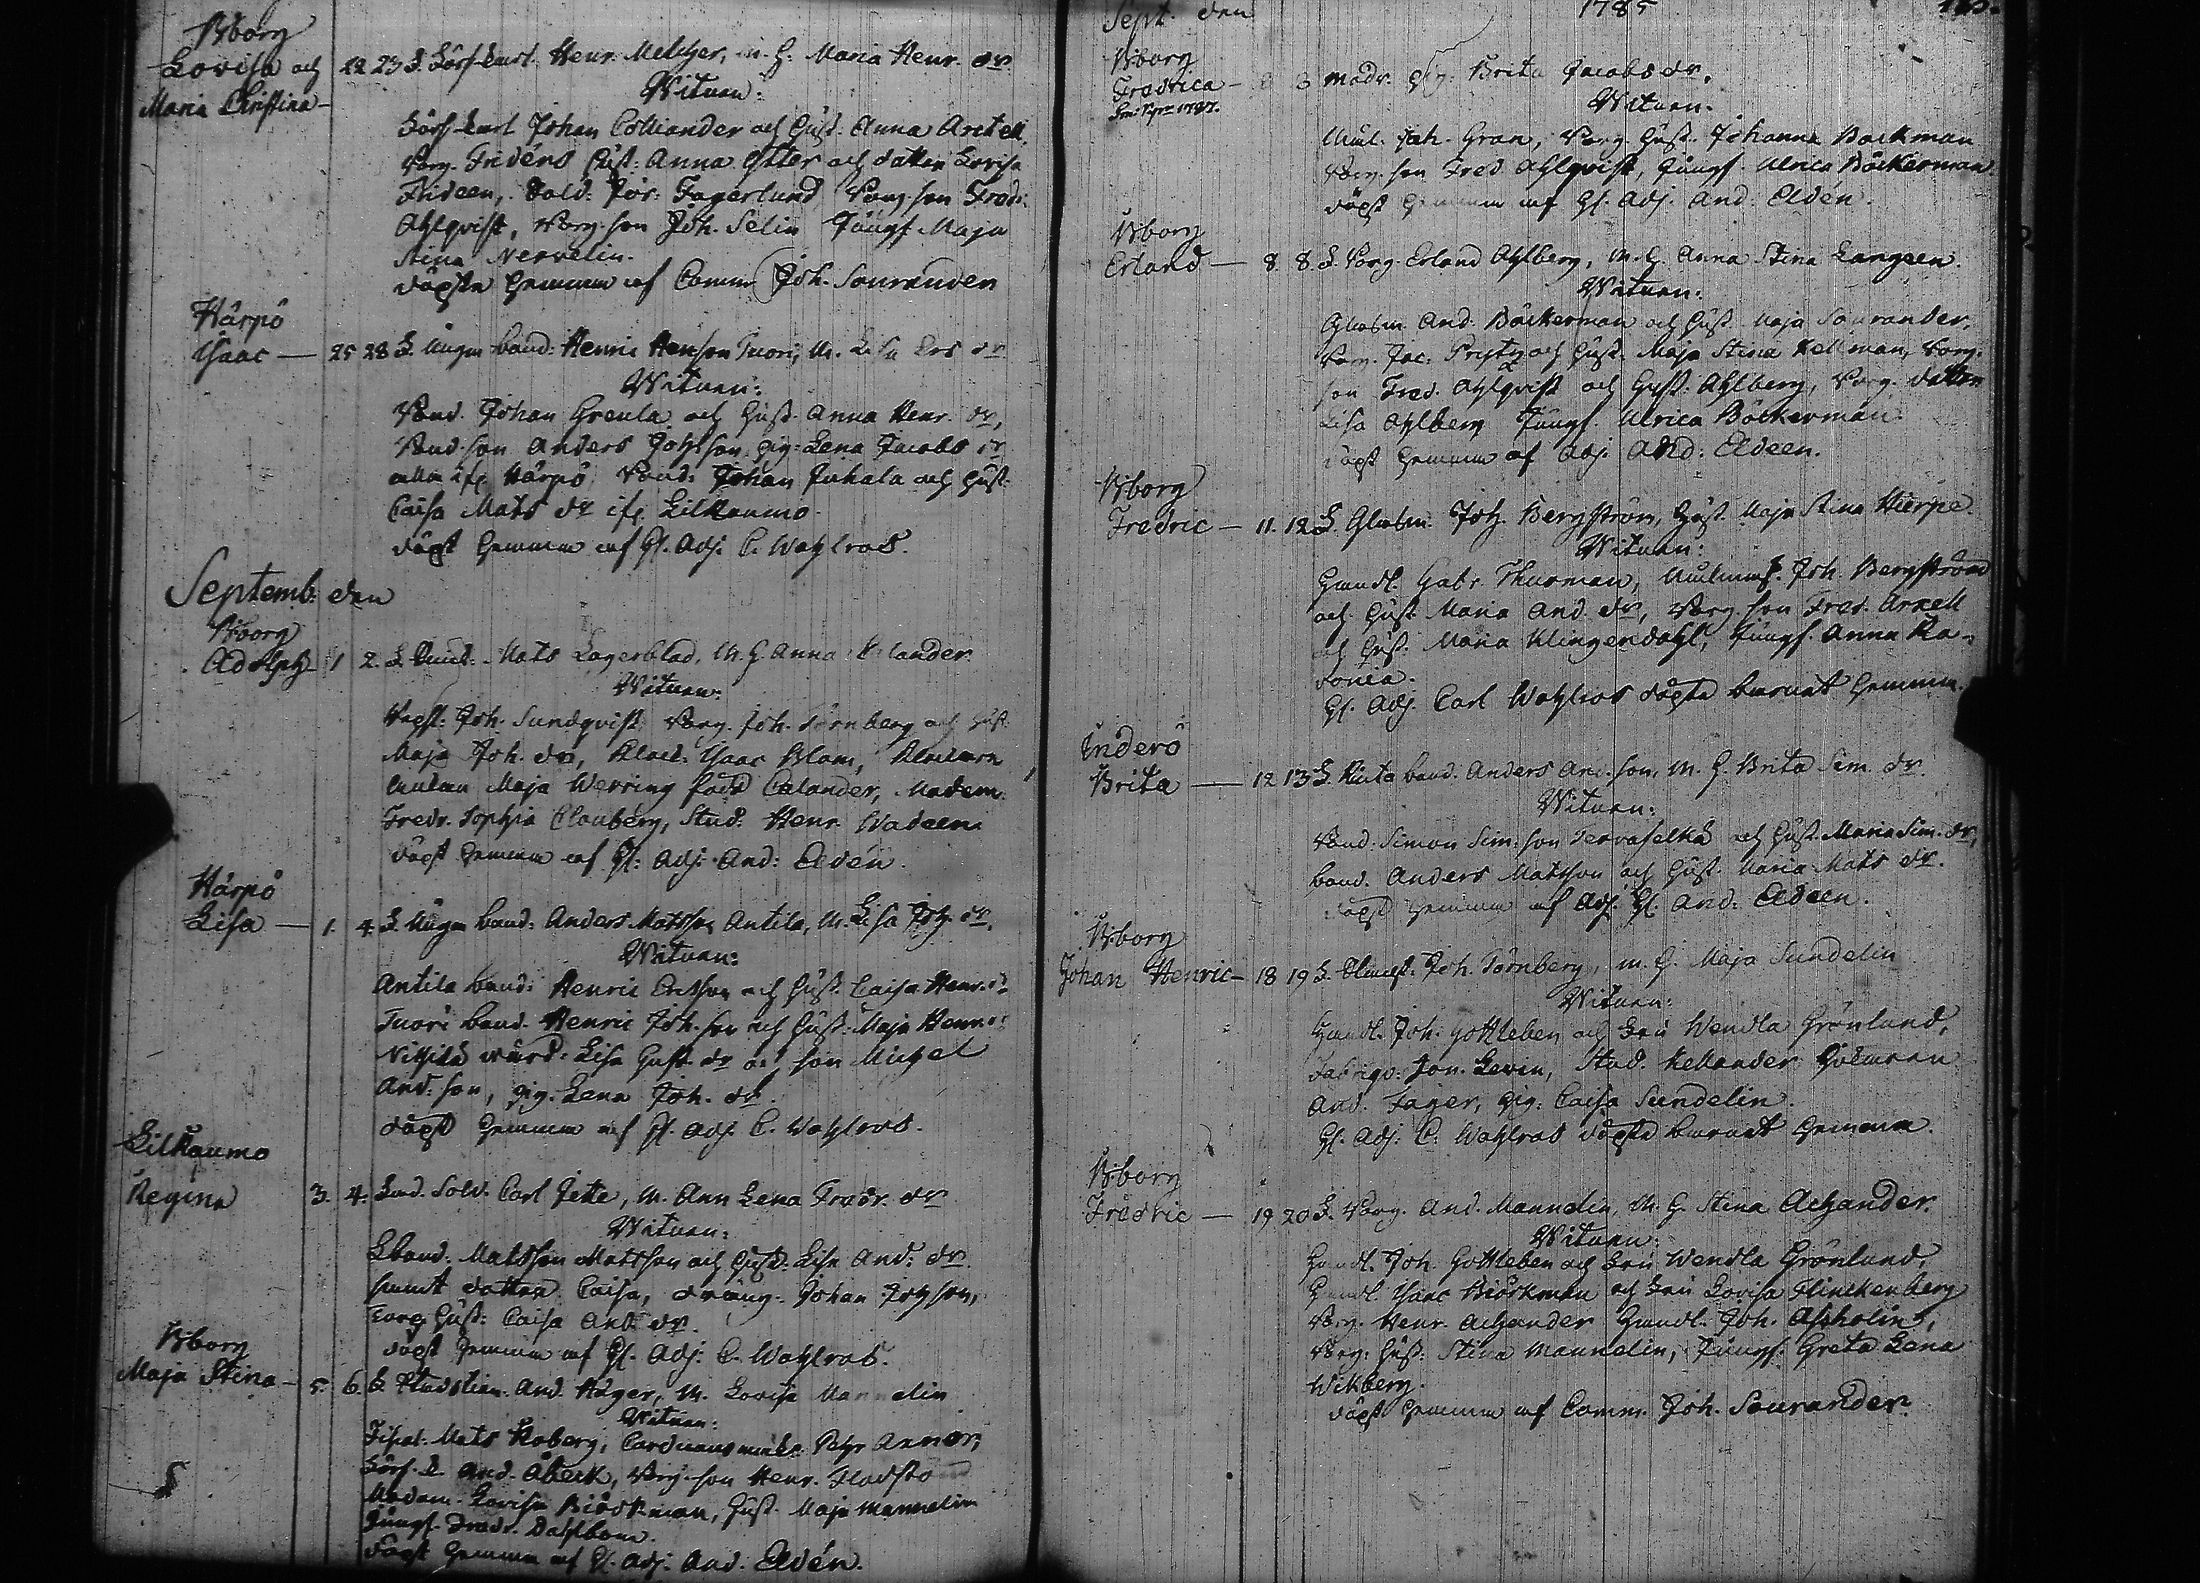 Bborg
Lovisa och 22 23 Henr. Meltzer, M. H. Maria Henr. dr
Maria Christina
Witnen:
Johan Colliander och Hust. Anna Aretell,
Borg. Fridéns Hust: Anna Otter och dotter Lovisa
Frideen, Sold: Jör: Fagerlund Borg. son Fredr.
Ahlqvist, Borg. son Joh. Selin Jungf. Maja
Stina Nervelin.
döpta hemma af Comm. Joh. Sourander
Härpö
Isaac — 25 28 bond: Henric Henson Tuori, M. Lisa Ers dr
Witnen:
Bond. Johan Greula och Hust. Anna Henr. dr,
Bond. son Anders Joh. son, pig. Lena Jacobs dr
alla ifr. Härpö, Bond. Johan Juhala och Hust.
Caisa Mats dr ifr. LilRaumo.
döpt hemma af H. Adj. C. Wahlroos.
Septemb. den
Bborg
Adolph 1 2 Mats Lagerblad, M. H. Anna
Witnen:
Joh. Sundqvist, Borg. Joh. Törnberg och Hust.
Maja Joh. dr, Isaac Blom,
Maja Werving född Calander, Madem.
Fredr. Sophia Clouberg, Stud. Henr. Wadeen.
döpt hemma af H. Adj. And: Eldén.
Härpö
Lisa — 1. 4. bond: Anders Matsson Antila, M. Lisa Joh. dr.
Witnen:
Antila bond: Henric Ericsson och Hust. Caisa Henr. dr
Tuori bond. Henric Joh. son och Hust. Maja Henr. dr
Lisa Gust. dr son Michel
And. son, pig. Lena Joh. dr.
döpt hemma af H. Adj. C. Wahlroos.
LilRaumo
Regina 3. 4. Sold. Carl Jette, M. Ann Lena Fredr. dr
Witnen:
Matsson Matsson och Hust. Lisa And: dr
samt dotter Caisa, dräng. Johan Johson,
Hust: Caisa And. dr.
döpt hemma af H. Adj. C. Wahlroos.
Bborg
Maja Stina — 5. 6. And. Häger, M. Lovisa Mannelin
Witnen:
Mats Roberg,
And. Åberk, Borg. son Henr.
Madam. Lovisa Biörkman, Hust. Maja Mannelin
Jungf. Fredr. Dahlbom.
döpt hemma af H. Adj. And. Eldén.
Sept. den 1785
Bborg
Fredrica — 3 Modr. pig: Brita Jacobs dr,
Witnen.
Joh. Gran, Borg. Hust. Johanna Backman
Borg. son Fred. Ahlqvist, Jungf. Ulrica Böckerman.
döpt hemma af H. Adj. And. Eldén.
Bborg
Erland — 8. 8. Borg. Erland Ahlberg, M. H. Anna Stina Langeen.
Witnen:
And. Böckerman och Hust. Maja Sourander,
Borg. Jac. Prytz och Hust. Maja Stina Kellman, Borg.
son Fred. Ahlqvist och Hust. Ahlberg, Borg. dotter
Lisa Ahlberg Jungf. Ulrica Böckerman
döpt hemma af Adj. And: Eldeen.
Bborg
Fredric — 11. 12 Joh. Bergström, Hust. Maja Stina Hierpe
Witnen:
Handl. Gabr. Thurman, Joh. Bergström
och Hust. Maria And. dr, Borg. son Fred. Arxell
och Hust. Maria Klingendahl, Jungf. Anna Ra-
donia.
H. Adj. Carl Wahlroos döpte barnet hemma.
Inderö
Brita — 12 13 bond: Anders And. son, M. H. Brita Sim. dr.
Witnen:
Bond: Simon Sim: son Tervaselkä och Hust. Maria Sim. dr,
bond. Anders Matsson och Hust. Maria Mats dr.
döpt hemma af Adj. H. And: Eldeen.
Bborg
Johan Henric — 18 19 Joh. Törnberg, M. H. Maja Sundelin
Witnen:
Handl. Joh. Gottleben och Fru Wendla Grönlund,
Fabriqv. Jon. Levin, Stud. Kellander
And. Fager, pig. Caisa Sundelin.
H. Adj. C. Wahlroos döpte barnet hemma.
Bborg
Fredric — 19 20 Borg. And. Mannelin, M. H. Stina Achander.
Witnen:
Handl. Joh. Gottleben och Fru Wendla Grönlund,
Handl. Isaac Biörkman och Fru Lovisa Flinckenberg
Borg. Henr. Achander Handl. Joh. Aspholin,
Borg. Hust: Stina Mannelin, Jungf. Greta Lena
Wikberg.
döpt hemma af Comm. Joh. Sourander.